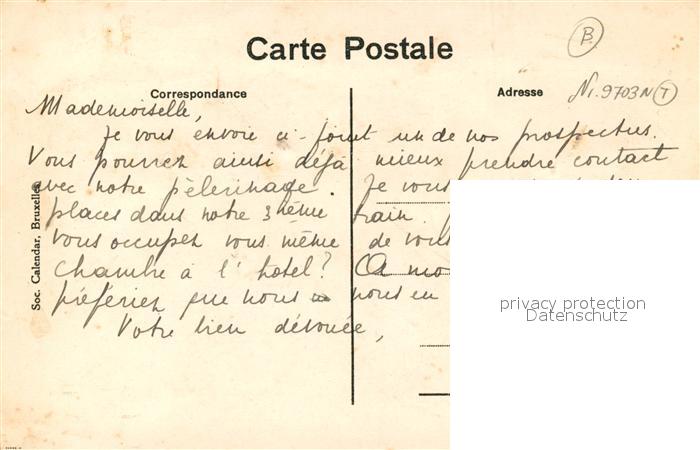 Carte Postale
B
Correspondance
Adresse
N1.9703N T
Mademoiselle,
Je vous envoie ci-joint un de nos prospectus.
Vous pourrez ainsi déjà mieux prendre contact
avec notre pèlerinage. Je vous
places dans notre 3 ième train.
Vous occupez vous même de vous
chambre à l'hotel? A mo
préfériez que nous nous en
Votre bien dévouée,
Soc. Calendar, Bruxelles
privacy protection
Datenschutz